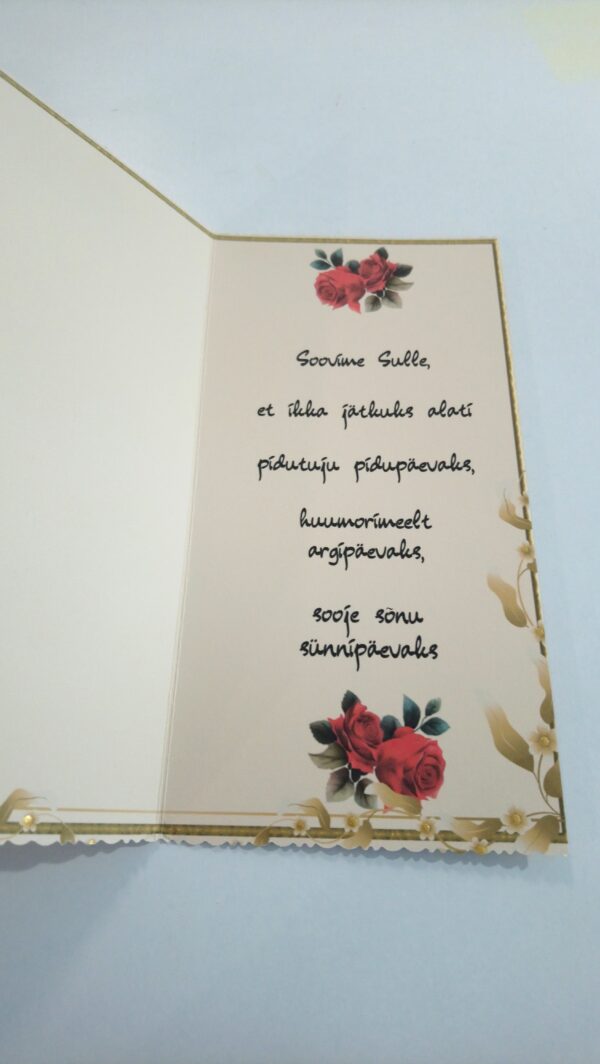 Soovime Sulle,
et ikka jätkuks alati
pidutuju pidupäevaks,
huumorimeelt
argipäevaks,
sooje sõnu
sünnipäevaks